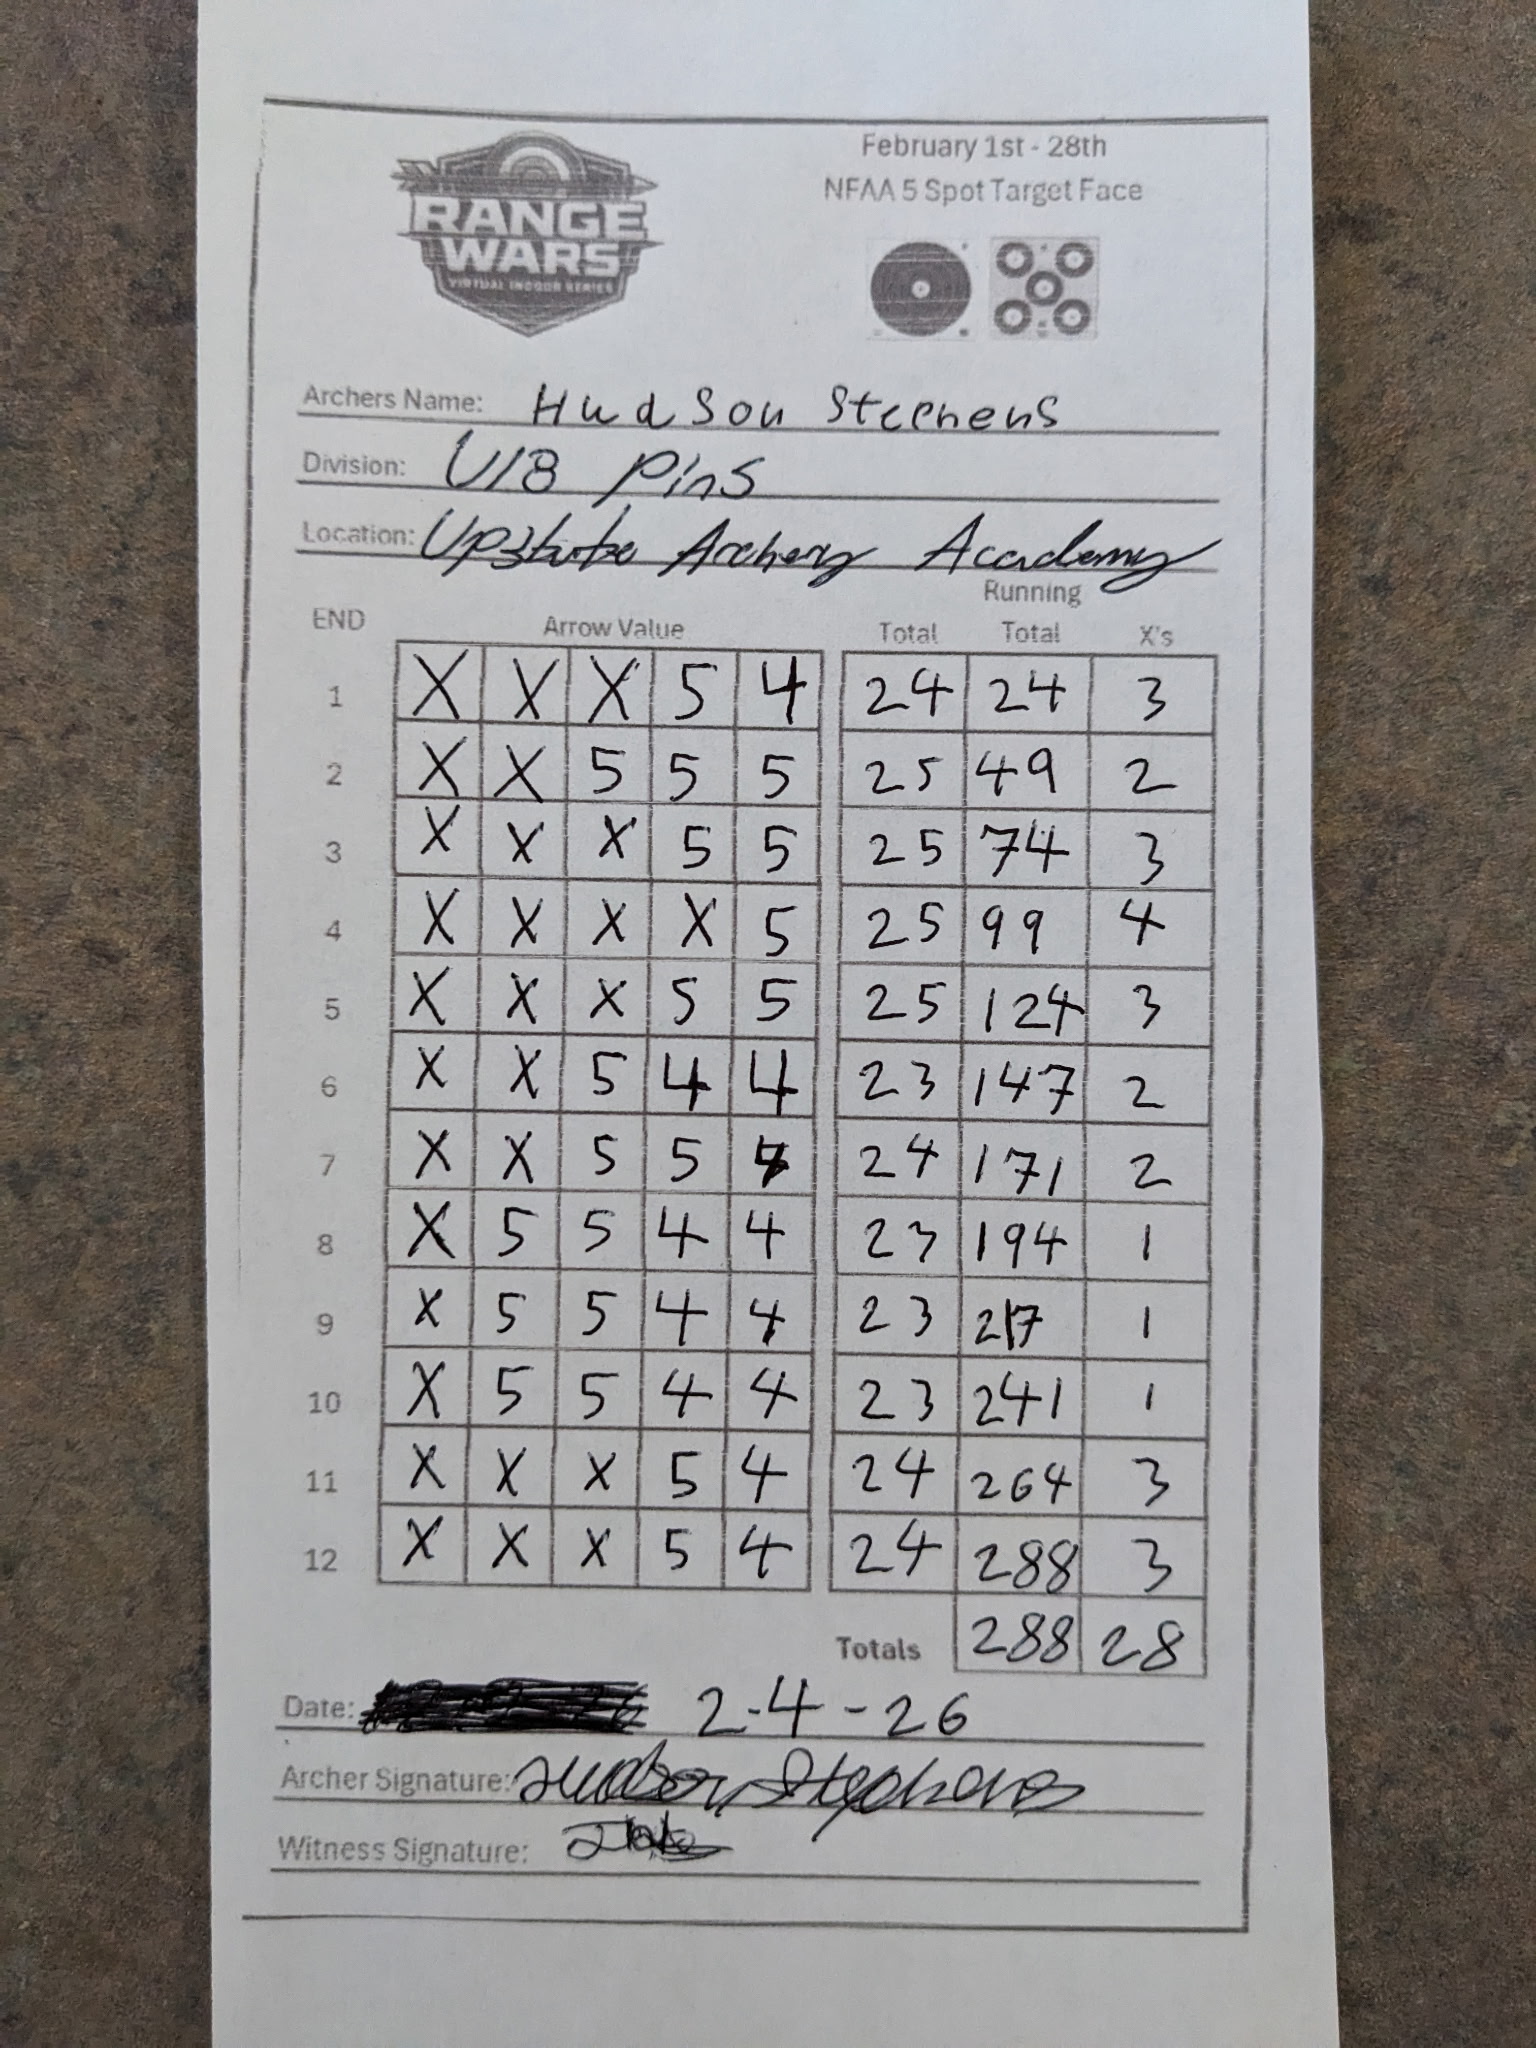 RANGE
WARS
VIRTUAL INDOOR SERIES
February 1st - 28th
NFAA 5 Spot Target Face
Archers Name: Hudson Stephens
Division: U18 Pins
Location: Upstate Archery Academy
END Arrow Value Total Running Total X's
1 X X X 5 4 24 24 3
2 X X 5 5 5 25 49 2
3 X X X 5 5 25 74 3
4 X X X X 5 25 99 4
5 X X X 5 5 25 124 3
6 X X 5 4 4 23 147 2
7 X X 5 5 4 24 171 2
8 X 5 5 4 4 23 194 1
9 X 5 5 4 4 23 217 1
10 X 5 5 4 4 23 241 1
11 X X X 5 4 24 264 3
12 X X X 5 4 24 288 3
Totals 288 28
Date: 2-4-26
Archer Signature: Hudson Stephens
Witness Signature: